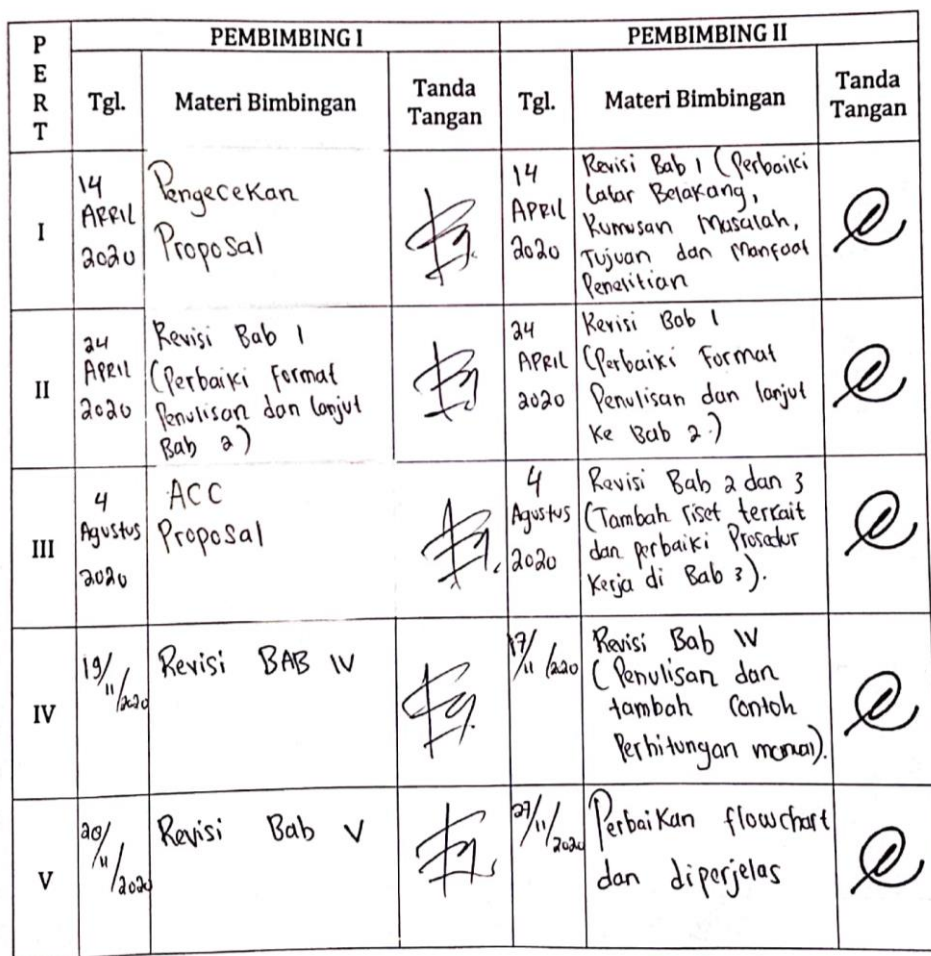 PERT
PEMBIMBING I
PEMBIMBING II
Tgl.
Materi Bimbingan
Tanda
Tangan
Tgl.
Materi Bimbingan
Tanda
Tangan
I
14
APRIL
2020
Pengecekan
Proposal
14
APRIL
2020
Revisi Bab 1 (Perbaiki
Latar Belakang,
Rumusan Masalah,
Tujuan dan Manfaat
Penelitian
II
24
APRIL
2020
Revisi Bab 1
(Perbaiki Format
Penulisan dan lanjut
Bab 2)
24
APRIL
2020
Revisi Bab 1
(Perbaiki Format
Penulisan dan lanjut
Ke Bab 2.)
III
4
Agustus
2020
ACC
Proposal
4
Agustus
2020
Revisi Bab 2 dan 3
(Tambah riset terkait
dan perbaiki Prosedur
Kerja di Bab 3).
IV
19/11/2020
Revisi BAB IV
17/11/2020
Revisi Bab IV
(Penulisan dan
tambah Contoh
Perhitungan manual).
V
/11/2020
Revisi Bab V
27/11/2020
Perbaikan flowchart
dan diperjelas